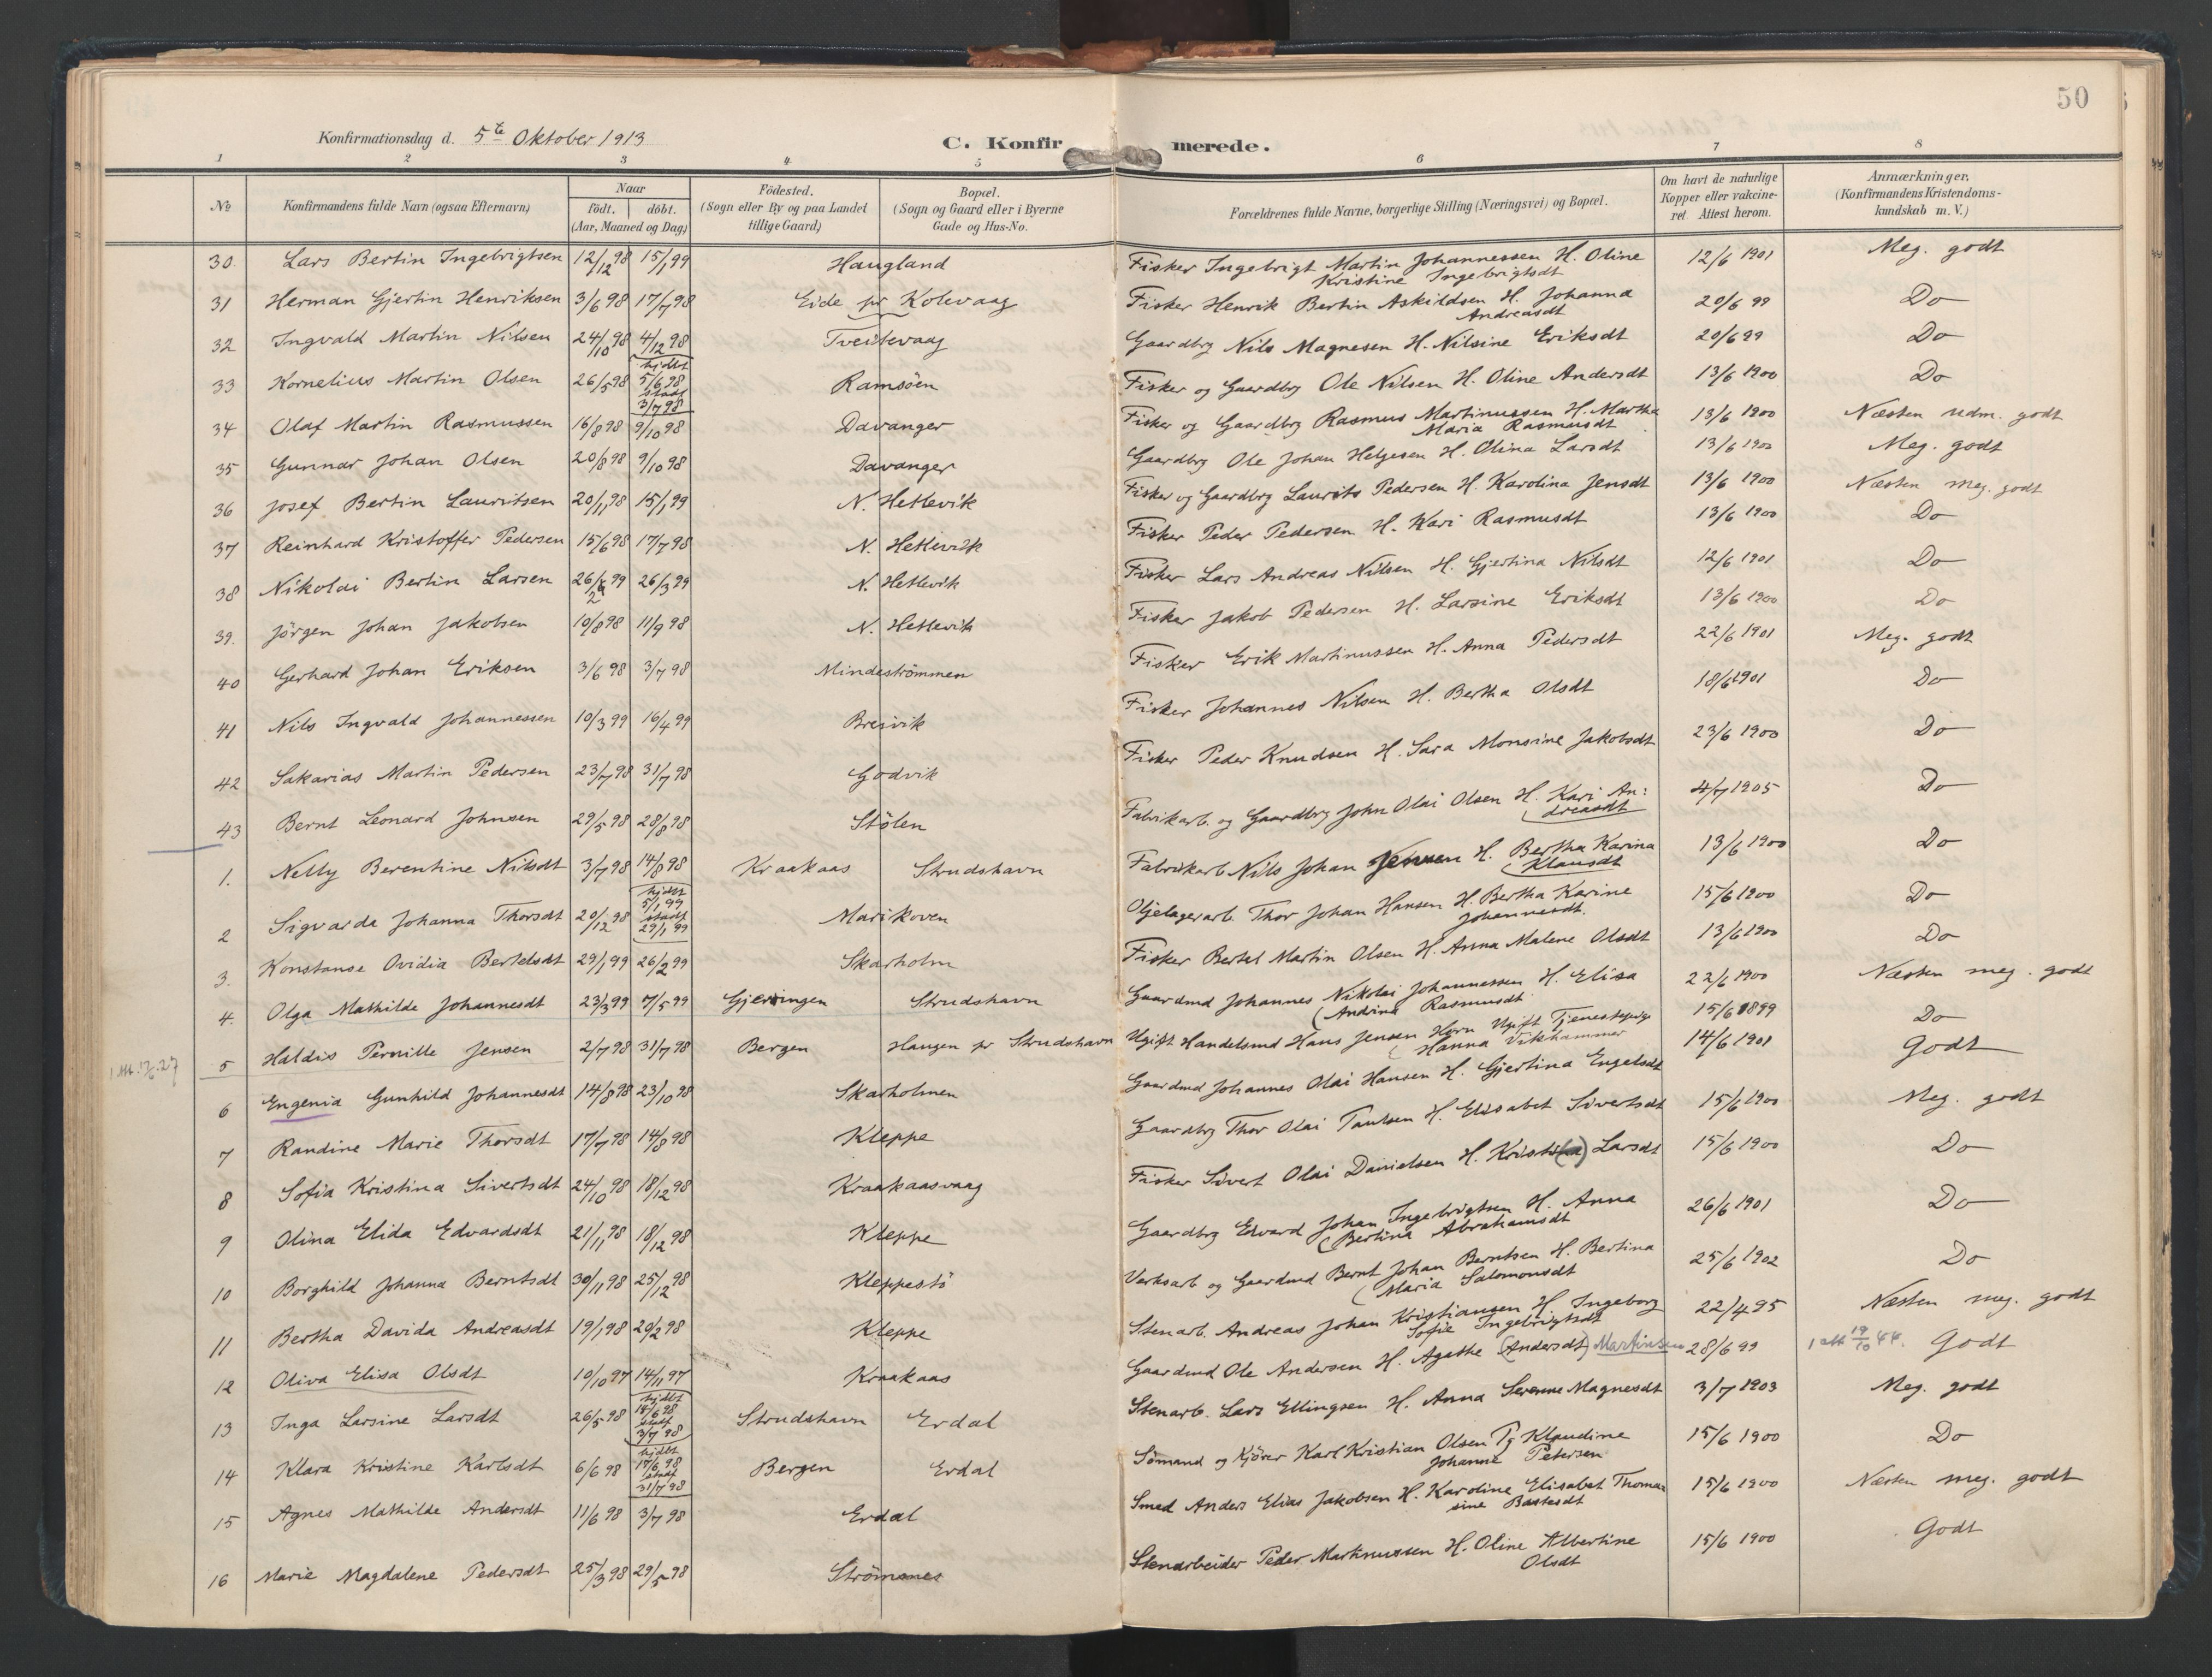 50
Konfirmationsdag d. 5te Oktober 1913
C. Konfirmerede.
1 2 3 4 5 6 7 8
No Konfirmandens fulde Navn (ogsaa Efternavn) Naar født. døbt. (Aar, Maaned og Dag) Födested. (Sogn eller By og paa Landet tillige Gaard) Bopæl. (Sogn og Gaard eller i Byerne Gade og Hus-No. Forældrenes fulde Navne, borgerlige Stilling (Næringsvei) og Bopæl. Om havt de naturlige Kopper eller vakcineret. Attest herom. Anmærkninger. (Konfirmandens Kristendomskundskab m. V.)
30. Lars Bertin Ingebrigtsen 12/12 98 15/1 99 Haugland Fisker Ingebrigt Martin Johannessen H. Oline Kristine Ingebrigtsdt 12/6 1901 Meg. godt
31 Herman Gjertin Henriksen 3/6 98 17/7 98 Eide pr Kolevaag Fisker Henrik Bertin Askildsen H. Johanna Andreasdt 20/6 99 Do
32 Ingvald Martin Nilsen 24/10 98 4/12 98 Tveitevaag Gaardbrg Nils Magnesen H. Nilsine Eriksdt 20/6 99 Do
33 Kornelius Martin Olsen 26/5 98 hjdbt 5/6 98 stadf 3/7 98 Ramsöen Fisker og Gaardbrg Ole Nilsen H. Oline Andersdt 13/6 1900 Do
34 Olaf Martin Rasmussen 16/8 98 9/10 98 Davanger Fisker og Gaardbrg Rasmus Martinussen H. Martha Maria Rasmusdt 13/6 1900 Næsten udm. godt
35 Gunnar Johan Olsen 20/8 98 9/10 98 Davanger Gaardbrg Ole Johan Helgesen H. Olina Larsdt 13/6 1900 Meg. godt
36 Josef Bertin Lauritsen 20/11 98 15/1 99 N. Hetlevik Fisker og Gaardbrg Laurits Pedersen H. Karolina Jensdt 13/6 1900 Næsten meg. godt
37 Reinhard Kristoffer Pedersen 15/6 98 17/7 98 N. Hetlevik Fisker Peder Pedersen H. Kari Rasmusdt 13/6 1900 Do
38 Nikolai Bertin Larsen 26/2 99 26/3 99 N. Hetlevik Fisker Lars Andreas Nilsen H. Gjertina Nilsdt 12/6 1901 Do
39. Jörgen Johan Jakobsen 10/8 98 11/9 98 N. Hetlevik Fisker Jakob Pedersen H. Larsine Eriksdt 13/6 1900 Do
40 Gerhard Johan Eriksen 3/6 98 3/7 98 Mindeströmmen Fisker Erik Martinussen H. Anna Pedersdt 22/6 1901 Meg. godt
41 Nils Ingvald Johannessen 10/3 99 16/4 99 Breivik Fisker Johannes Nilsen H. Bertha Olsdt 18/6 1901 Do
42 Sakarias Martin Pedersen 23/7 98 31/7 98 Godvik Fisker Peder Knudsen H. Sara Monsine Jakobsdt 23/6 1900 Do
43 Bernt Leonard Johnsen 29/5 98 28/8 98 Stölen Fabrikarb. og Gaardbrg John Olai Olsen H. Kari Andreasdt 4/7 1905 Do
1. Nelly Berentine Nilsdt 3/7 98 14/8 98 Kraakaas Strudshavn Fabrikarb Nils Johan Jensen H. Bertha Karina Klausdt 13/6 1900 Do
2 Sigvarda Johanna Thorsdt 20/12 98 hjdbt 5/1 99 stadf 29/1 99 Marikoven Oljelagerarb. Thor Johan Hansen H. Bertha Karine Johannesdt. 15/6 1900 Do
3. Konstanse Ovidia Bertelsdt 29/1 99 26/2 99 Skarholm Fisker Bertel Martin Olsen H. Anna Malene Olsdt 13/6 1900 Do
4. Olga Mathilde Johannesdt 23/3 99 7/5 99 Gjerningen Strudshavn Gaardmd Johannes Nikolai Johannessen H. Elisa Andrine Rasmusdt 22/6 1900 Næsten meg. godt
5 Haldis Pernille Jensen 2/7 98 31/7 98 Bergen Haugen pr Strudshavn Ugift Handelsmd Hans Jensen Horn Ugift Tjenestepige Hanna Vikhammer 15/6 1899 Do
6 Engenia Gunhild Johannesdt 14/8 98 23/10 98 Skarholmen Gaardmd Johannes Olai Hansen H. Gjertina Engelsdt 14/6 1901 Godt
7 Randine Marie Thorsdt 17/7 98 14/8 98 Kleppe Gaardbrg Thor Olai Paulsen H. Elisabet Sivertsdt 15/6 1900 Meg. godt
8 Sofia Kristina Sivertsdt 24/10 98 18/12 98 Kraakaasvaag Fisker Sivert Olai Danielsen H. Larsdt 15/6 1900 Do
9 Olina Elida Edvardsdt 21/11 98 18/12 98 Kleppe Gaardbrg Edvard Johan Ingebrigtsen H. Anna Bertina Abrahamsdt 26/6 1901 Do
10 Borghild Johanna Berntsdt 30/11 98 25/12 98 Kleppestö Verksarb og Gaardmd Bernt Johan Berntsen H. Bertina Maria Salomonsdt 25/6 1902 Do
11 Bertha Davida Andreasdt 19/1 98 20/2 98 Kleppe Stenarb. Andreas Johan Kristiansen H. Ingeborg Sofie Ingebrigtsdt 22/4 95 Næsten meg. godt
12 Oliva Elisa Olsdt 10/10 97 14/11 97 Kraakaas Gaardmd Ole Andersen H. Agathe (Andersdt) Martinsen 28/6 99 1 att 19/10 44. Godt
13 Inga Larsine Larsdt 26/5 98 hjdbt 18/6 98 stadf 3/7 98 Strudshavn Erdal Stenarb. Lars Ellingsen H. Anna Severine Magnesdt 3/7 1903 Meg. godt
14 Klara Kristine Karlsdt 6/6 98 hjdbt 17/6 98 stadf 31/7 98 Bergen Erdal Sömand og Kjörer Karl Kristian Olsen Pg Klaudine Johanne Petersen 15/6 1900 Do
15 Agnes Mathilde Andersdt 11/6 98 3/7 98 Erdal Smed Anders Elias Jakobsen H. Karoline Elisabet Thomasine Bastesdt 15/6 1900 Næsten meg. godt
16 Marie Magdalene Pedersdt 25/3 98 29/5 98 Strömsnes Stenarbeider Peder Martinussen H. Oline Albertine Olsdt 15/6 1900 Godt